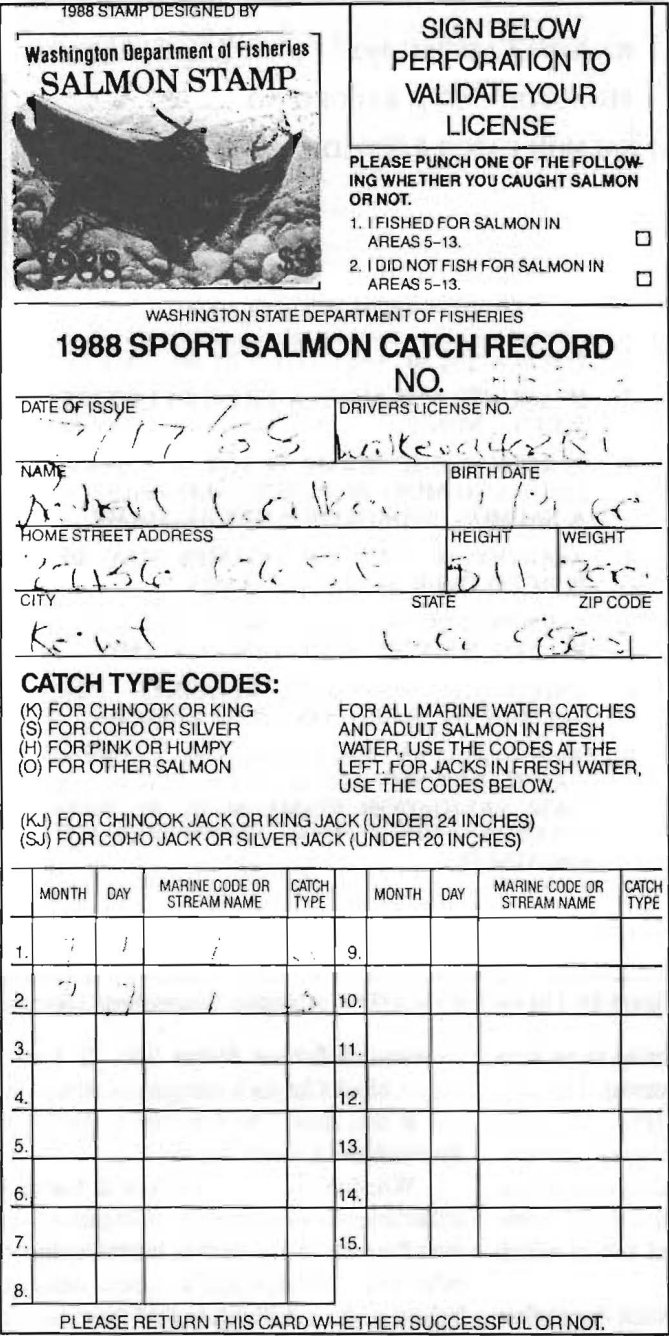 1988 STAMP DESIGNED BY
Washington Department of Fisheries
SALMON STAMP
1988 $3
SIGN BELOW
PERFORATION TO
VALIDATE YOUR
LICENSE
PLEASE PUNCH ONE OF THE FOLLOW-
ING WHETHER YOU CAUGHT SALMON
OR NOT.
1. I FISHED FOR SALMON IN
AREAS 5-13.
2. I DID NOT FISH FOR SALMON IN
AREAS 5-13.
WASHINGTON STATE DEPARTMENT OF FISHERIES
1988 SPORT SALMON CATCH RECORD
NO.
DATE OF ISSUE DRIVERS LICENSE NO.
NAME BIRTH DATE
HOME STREET ADDRESS HEIGHT WEIGHT
CITY STATE ZIP CODE
CATCH TYPE CODES:
(K) FOR CHINOOK OR KING
(S) FOR COHO OR SILVER
(H) FOR PINK OR HUMPY
(O) FOR OTHER SALMON
FOR ALL MARINE WATER CATCHES
AND ADULT SALMON IN FRESH
WATER, USE THE CODES AT THE
LEFT. FOR JACKS IN FRESH WATER,
USE THE CODES BELOW.
(KJ) FOR CHINOOK JACK OR KING JACK (UNDER 24 INCHES)
(SJ) FOR COHO JACK OR SILVER JACK (UNDER 20 INCHES)
MONTH DAY MARINE CODE OR STREAM NAME CATCH TYPE MONTH DAY MARINE CODE OR STREAM NAME CATCH TYPE
1. 9.
2. 10.
3. 11.
4. 12.
5. 13.
6. 14.
7. 15.
8.
PLEASE RETURN THIS CARD WHETHER SUCCESSFUL OR NOT.